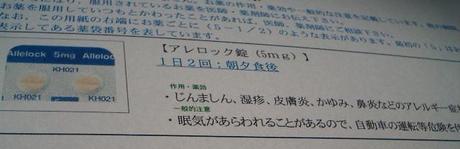 お薬を服用していてもなにかわったことがあれば、
なお、この用紙の右端にお薬ごとに(5-1/2)のような表示があります。最初の「5」は
表示してある薬袋番号を表しています。
Allelock 5mg Allelock
KH021 KH021
KH021 KH021
【アレロック錠(5mg)】
1日2回:朝夕食後
作用・薬効
・じんましん、湿疹、皮膚炎、かゆみ、鼻炎などのアレルギー症
一般的注意
・眠気があらわれることがあるので、自動車の運転等危険を